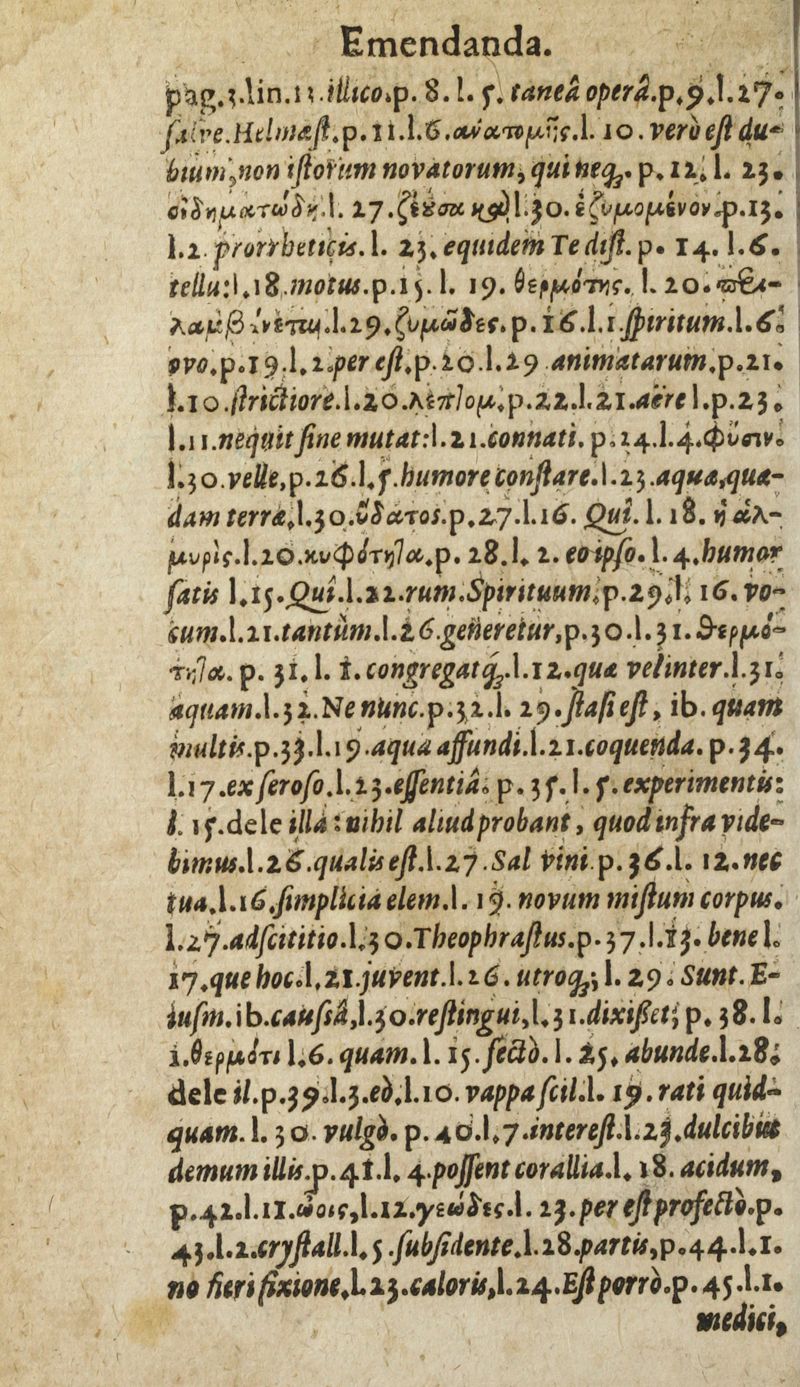 Emendanda.
pag.3.lin.13.illico.p. 8. l. 5. taneâ operâ.p.9.l.27.
salve.Helmæst.p.11.l.6.ἀνατομῆς.l. 10. verò est du-
bium, non istorum novatorum, qui neq. p. 12. l. 23.
οἰδηματώδη.l. 27. ζέουσα καὶ l.30. ἐζυμομένον.p.13.
l.2. prorrheticis. l. 23. equidem Te dist. p. 14. l.6.
tellu:l.18.motus.p.15. l. 19. θερμότης. l. 20. περι-
λαμβάνεται.l.29.ζυμῶδες. p. 16.l.1.spiritum.l.6.
ovo.p.19.l.2.per est.p.20.l.29 animatarum.p.21.
l.10.strictiore.l.20.λεπτομ.p.22.l.21.aëre l.p.23.
l.11.nequit sine mutat:l.21.connati. p.24.l.4.φύσιν.
l.30.velle,p.26.l.5.humore constare.l.23.aqua,quæ-
dam terræ,l.30.ὕδατος.p.27.l.16. Qui. l. 18. ἡ ἁλ-
μυρὶς.l.20.κυφότητα.p. 28.l. 2. eo ipso. l. 4.humor
satis l.15.Qui.l.22.rum.Spirituum.p.29.l. 16. vo-
cum.l.21.tantùm.l.26.generetur,p.30.l.31.θερμό-
τητα. p. 31. l. 1. congregatq;.l.12.quæ vel inter.l.31.
aquam.l.32.Ne nunc.p.32.l. 29.stasi est, ib. quam
multis.p.33.l.19.aqua affundi.l.21.coquenda. p.34.
l.17.ex seroso.l.23.essentiâ. p. 35. l. 5. experimentis:
l. 15.dele illa: nihil aliud probant, quod infra vide-
bimus.l.26.qualis est.l.27.Sal vini.p.36.l. 12.nec
tua.l.16.simplicia elem.l. 19. novum mistum corpus.
l.27.adscititio.l.30.Theophrastus.p.37.l.13. bene l.
17.que hoc.l.21.juvent.l.26. utroq; l. 29. Sunt. E-
iusm.ib.causâ,l.30.restingui,l.31.dixisset; p. 38. l.
1.θερμότι l.6. quam. l. 15. sectò. l. 25. abunde.l.28.
dele il.p.39.l.3.eò.l.10. vappa scil.l. 19. rati quid-
quam. l. 30. vulgò. p. 40.l.7.interest.l.23.dulcibus
demum illis.p.41.l. 4.possent corallia.l. 18. acidum,
p.42.l.11.ὦοις,l.12.γεώδες.l. 23.per est profectò.p.
43.l.2.crystall.l.5.subsidente.l.28.partis,p.44.l.1.
no fieri fixione.l.23.caloris,l.24.Est porrò.p.45.l.1.
medici,